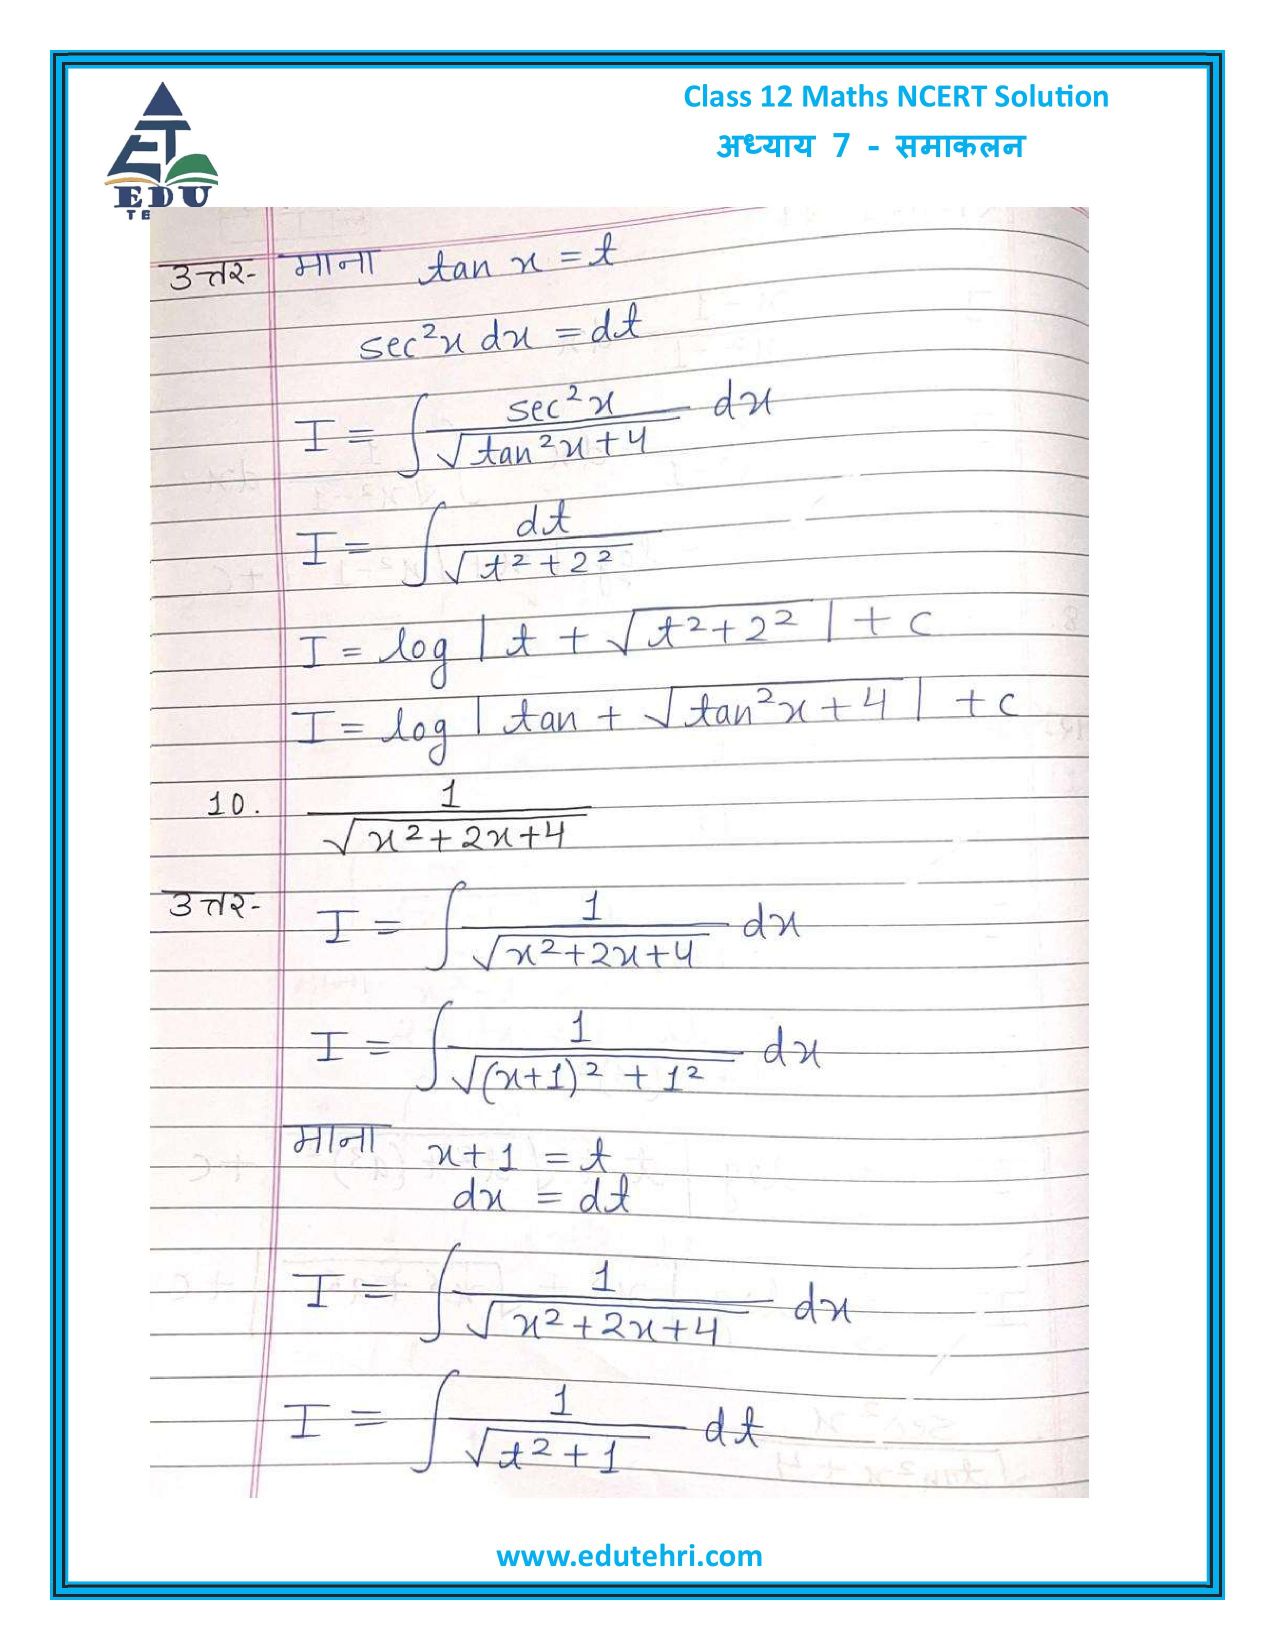 Class 12 Maths NCERT Solution
अध्याय 7 - समाकलन
ET
EDU
TE
उत्तर- माना tan x = t
sec²x dx = dt
I = ∫ sec²x / √(tan²x + 4) dx
I = ∫ dt / √(t² + 2²)
I = log | t + √(t² + 2²) | + c
I = log | tan + √(tan²x + 4) | + c
10. 1 / √(x² + 2x + 4)
उत्तर- I = ∫ 1 / √(x² + 2x + 4) dx
I = ∫ 1 / √((x+1)² + 1²) dx
माना x + 1 = t
dx = dt
I = ∫ 1 / √(x² + 2x + 4) dx
I = ∫ 1 / √(t² + 1) dt
www.edutehri.com